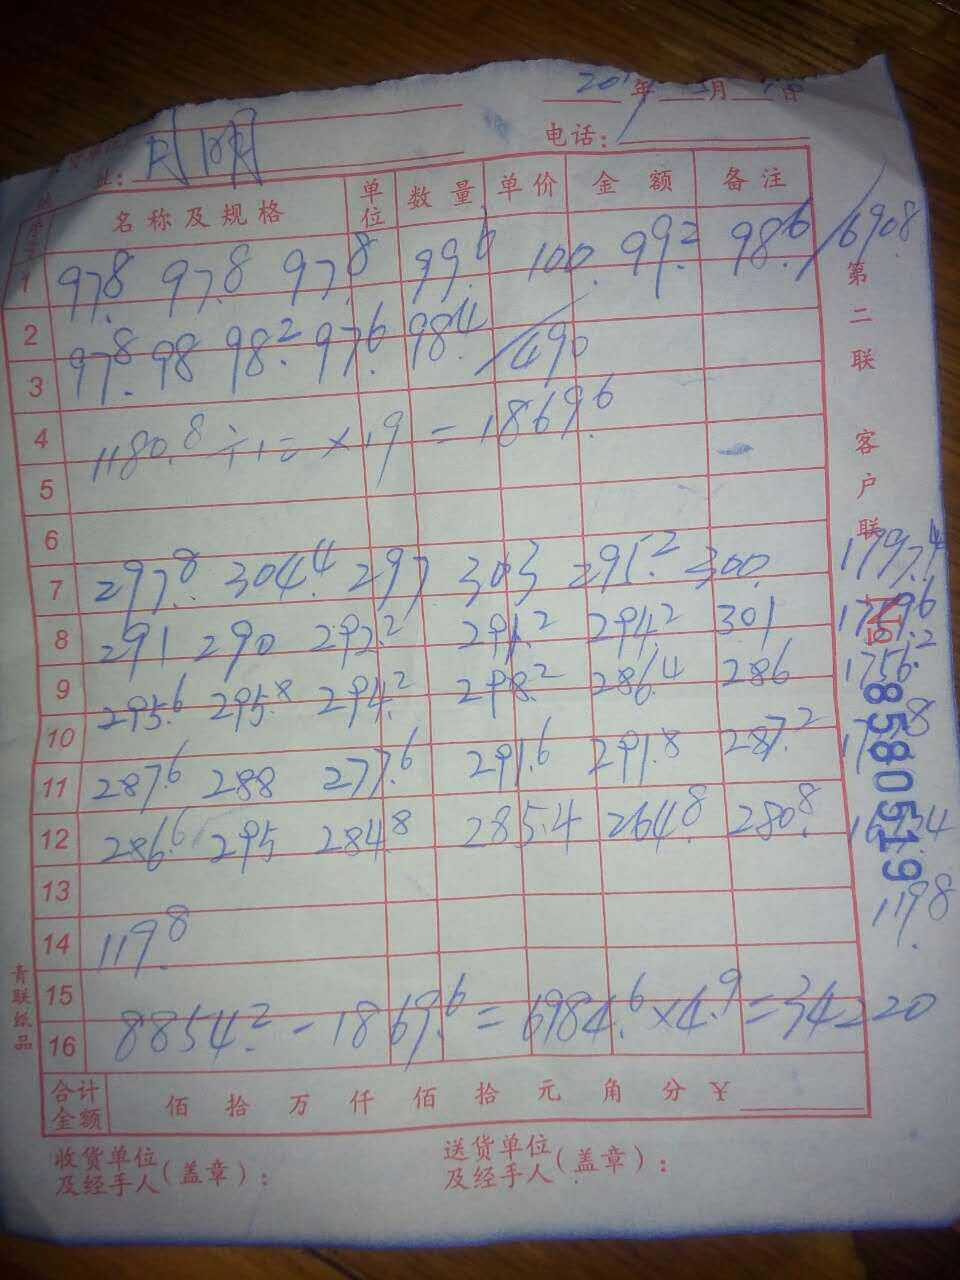 20 年 月 日
址: 电话:
名称及规格 单位 数量 单价 金额 备注
1 97.8 97.8 97.8 99.6 100. 99.2 98.6 / 690.8
2
3 97.8 98 98.2 97.6 98.4 / 490
4 1180.8 ÷12 × 19 = 1869.6
5
6
7 297.8 304.4 297 303 295.2 300. 1797.4
8 291 290 292.2 291.2 294.2 301 1759.6
9 295.6 295.8 294.2 298.2 286.4 286 1756.2
10
11 287.6 288 277.6 291.6 291.8 287.2
12 286.6 295 284.8 285.4 264.8 280.8
13 119.8
14 119.8
15
16 8854.2 - 1869.6 = 6984.6 × 4.9 = 34220
合计金额 佰 拾 万 仟 佰 拾 元 角 分 ¥
收货单位及经手人(盖章): 送货单位及经手人(盖章):
第二联 客户联
№ 8580519
青联纸品